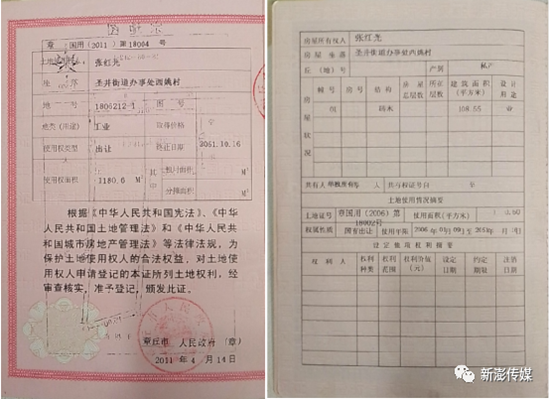 章 国用（2011）第18004 号
张红尧
坐 落 圣井街道办事处西姚村
地 号 1806212-1 图 号
地类（用途） 工业 取得价格
使用权类型 出让 终止日期 2051.10.16
使用权面积 1180.6 M²
其中 独用面积 M²
分摊面积 M²
根据《中华人民共和国宪法》、《中华
人民共和国土地管理法》和《中华人民
共和国城市房地产管理法》等法律法规，为
保护土地使用权人的合法权益，对土地使
用权人申请登记的本证所列土地权利，经
审查核实，准予登记，颁发此证。
章丘市 人民政府 （章）
2011 年 4 月 14 日
房屋所有权人 张红尧
房屋坐落 圣井街道办事处西姚村
丘（地）号 产别 私产
房屋状况
幢号 房号 结构 房屋总层数 所在层数 建筑面积（平方米） 设计用途
砖木 108.55
共有人 共有权证号自
土地使用情况摘要
土地证号 章国用（2006）第18002号 使用面积（平方米）
权属性质 国有出让 使用年限
设定他项权利摘要
权利人 权利种类 权利范围 权利价值（元） 设定日期 约定期限 注销日期
新澎传媒